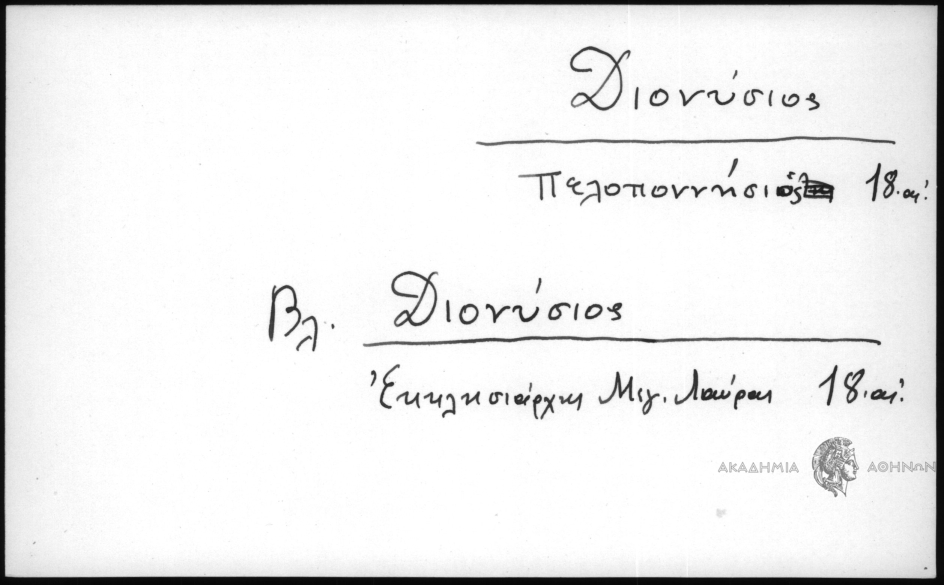 Διονύσιος
Πελοποννήσιος 18. αἰ.
Βλ. Διονύσιος
Ἐκκλησιάρχης Μεγ. Λαύρας 18. αἰ.
ΑΚΑΔΗΜΙΑ ΑΘΗΝΩΝ